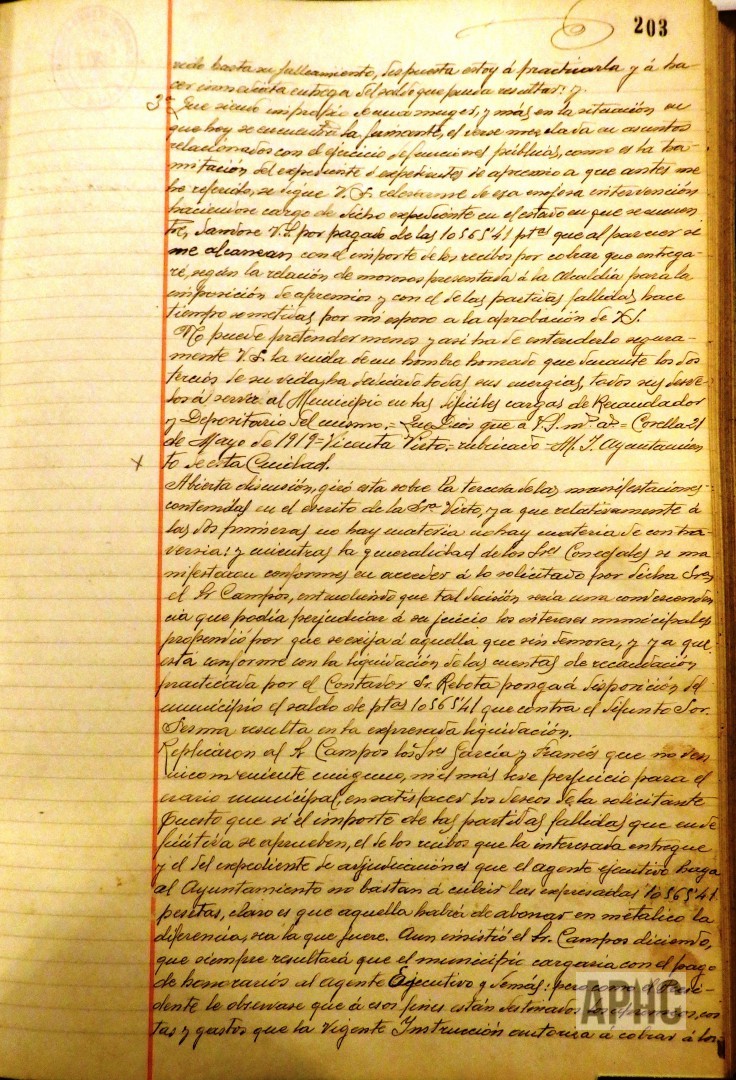 203
rede hasta su fallecimiento, dispuesta estoy á practicarla y á ha-
cer inmediata entrega del saldo que pueda resultar: y
3ª Que siendo impropio de una muger, y más en la situación en
que hoy se encuentra la firmante, el verse mezclada en asuntos
relacionados con el ejercicio de funciones públicas, como es la tra-
mitación del expediente ó expedientes de apremio a que antes me
he referido, se digne V.S. relevarme de esa enojosa intervención
haciendose cargo de dicho expediente en el estado en que se encuen
tre, dandose V.S. por pagado de las 10565'41 ptas que al parecer se
me alcanzan con el importe de los recibos por cobrar que entrega-
ré, según la relación de morosos presentada á la Alcaldía para la
imposición de apremios y con el de las partidas fallidas, hace
tiempo sometidas por mi esposo a la aprobación de V.S.
No puede pretender menos y así ha de entenderlo segura-
mente V.S. la viuda de un hombre honrado que durante los dos
tercios de su vida, ha dedicado todas sus energías, todos sus desve-
los á servir al Municipio en las difíciles cargas de Recaudador
y Depositario del mismo.- Que Dios que á V.S. ms. as.= Corella 21
de Mayo de 1919=Vicenta Virto,= rubricado= M. I. Ayuntamien
to de esta Ciudad.
Abierta discusión, giró esta sobre la tercera de las manifestaciones
contenidas en el escrito de la Sra Virto, ya que relativamente á
las dos primeras no hay materia no hay materia de contra-
versia: y mientras la generalidad de los Sres Concejales se ma
nifestaron conformes en acceder á lo solicitado por dicha Sra,
el Sr Campos, entendiendo que tal decisión seria una condescenden
cia que podía perjudicar á su juicio los intereses municipales
propendió por que se exija á aquella que sin demora, y ya que
está conforme con la liquidación de las cuentas de recaudación
practicada por el Contador Sr. Rebota ponga á disposición del
municipio el saldo de ptas 10565'41 que contra el difunto Sor.
Sesma resulta en la expresada liquidación.
Replicaron al Sr Campos los Sres García y Francés que no ven
inconveniente ninguno, ni el más leve perjuicio para el
erario municipal, en satisfacer los deseos de la solicitante
puesto que si el importe de las partidas fallidas que en de
finitiva se aprueben, el de los recibos que la interesada entregue
y el del expediente de adjudicaciones que el agente ejecutivo haga
al Ayuntamiento no bastan á cubrir las expresadas 10565'41
pesetas, claro es que aquella habrá de abonar en metálico la
diferencia, sea la que fuere. Aun insistió el Sr. Campos diciendo,
que siempre resultará que el municipio cargaria con el pago
de honorarios al agente Ejecutivo y demás: pero como el Presi-
dente le observase que á esos fines están destinados los apremios, cos
tas y gastos que la vigente Instrucción autoriza a cobrar á los
APHC